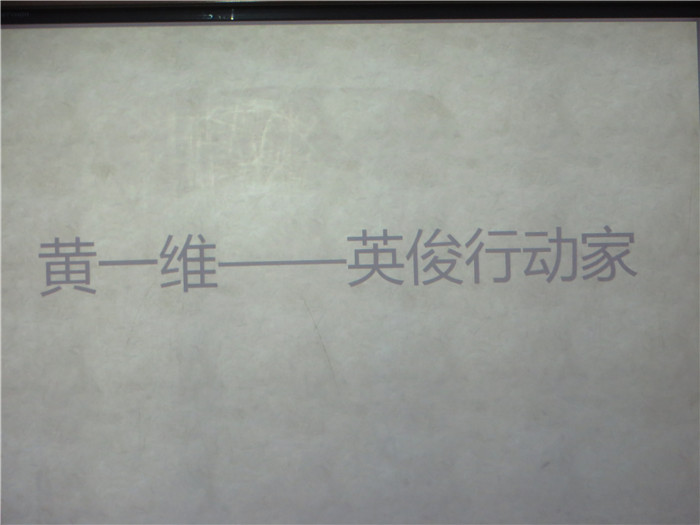 黄一维——英俊行动家